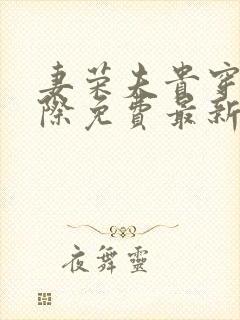 妻荣夫贵穿
际免费最新
夜舞靈